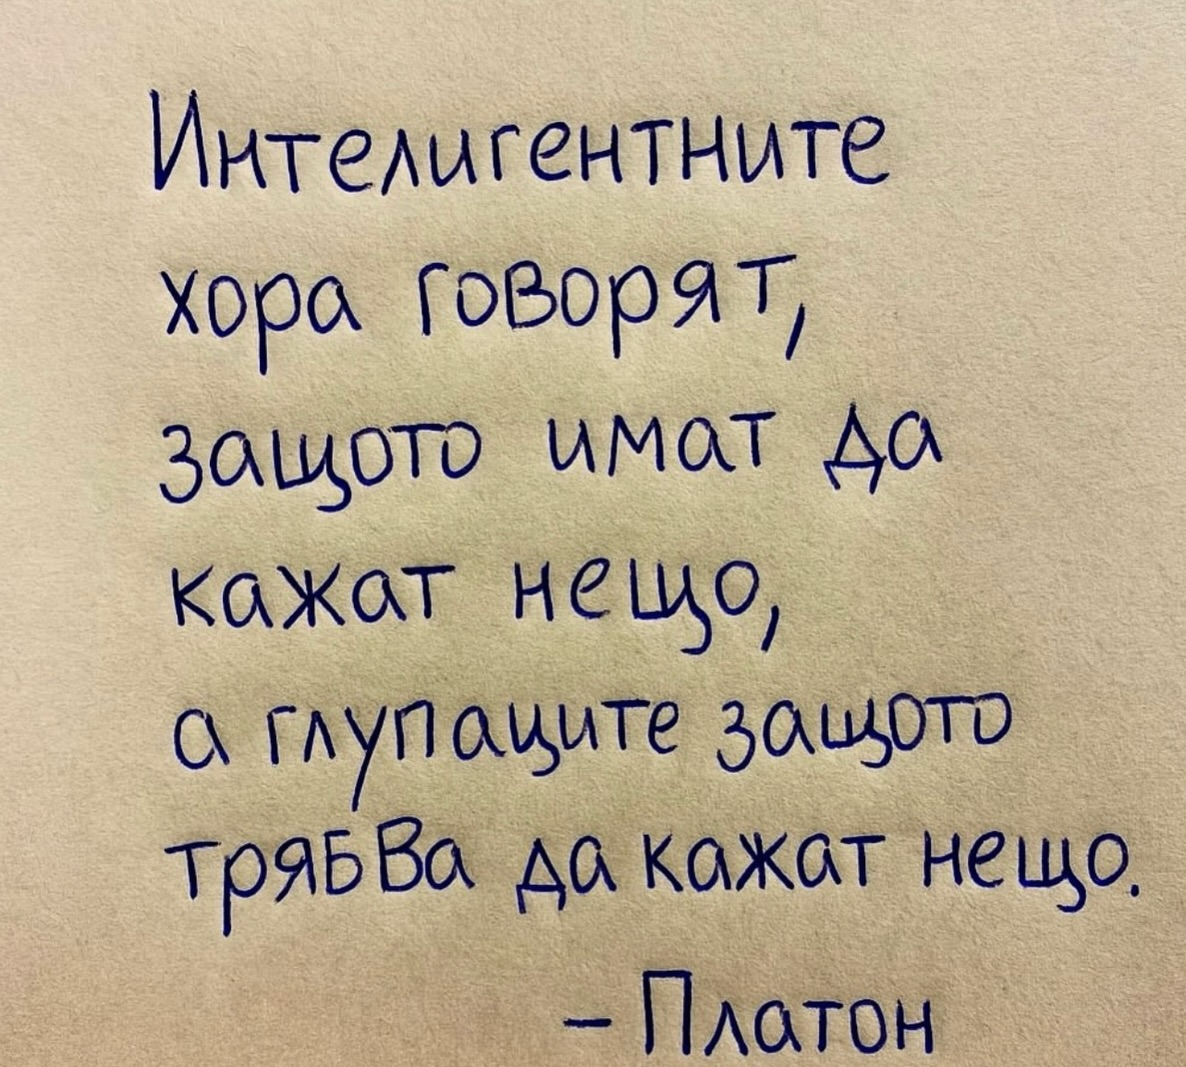 Интелигентните
хора говорят,
защото имат да
кажат нещо,
а глупаците защото
трябва да кажат нещо.
– Платон